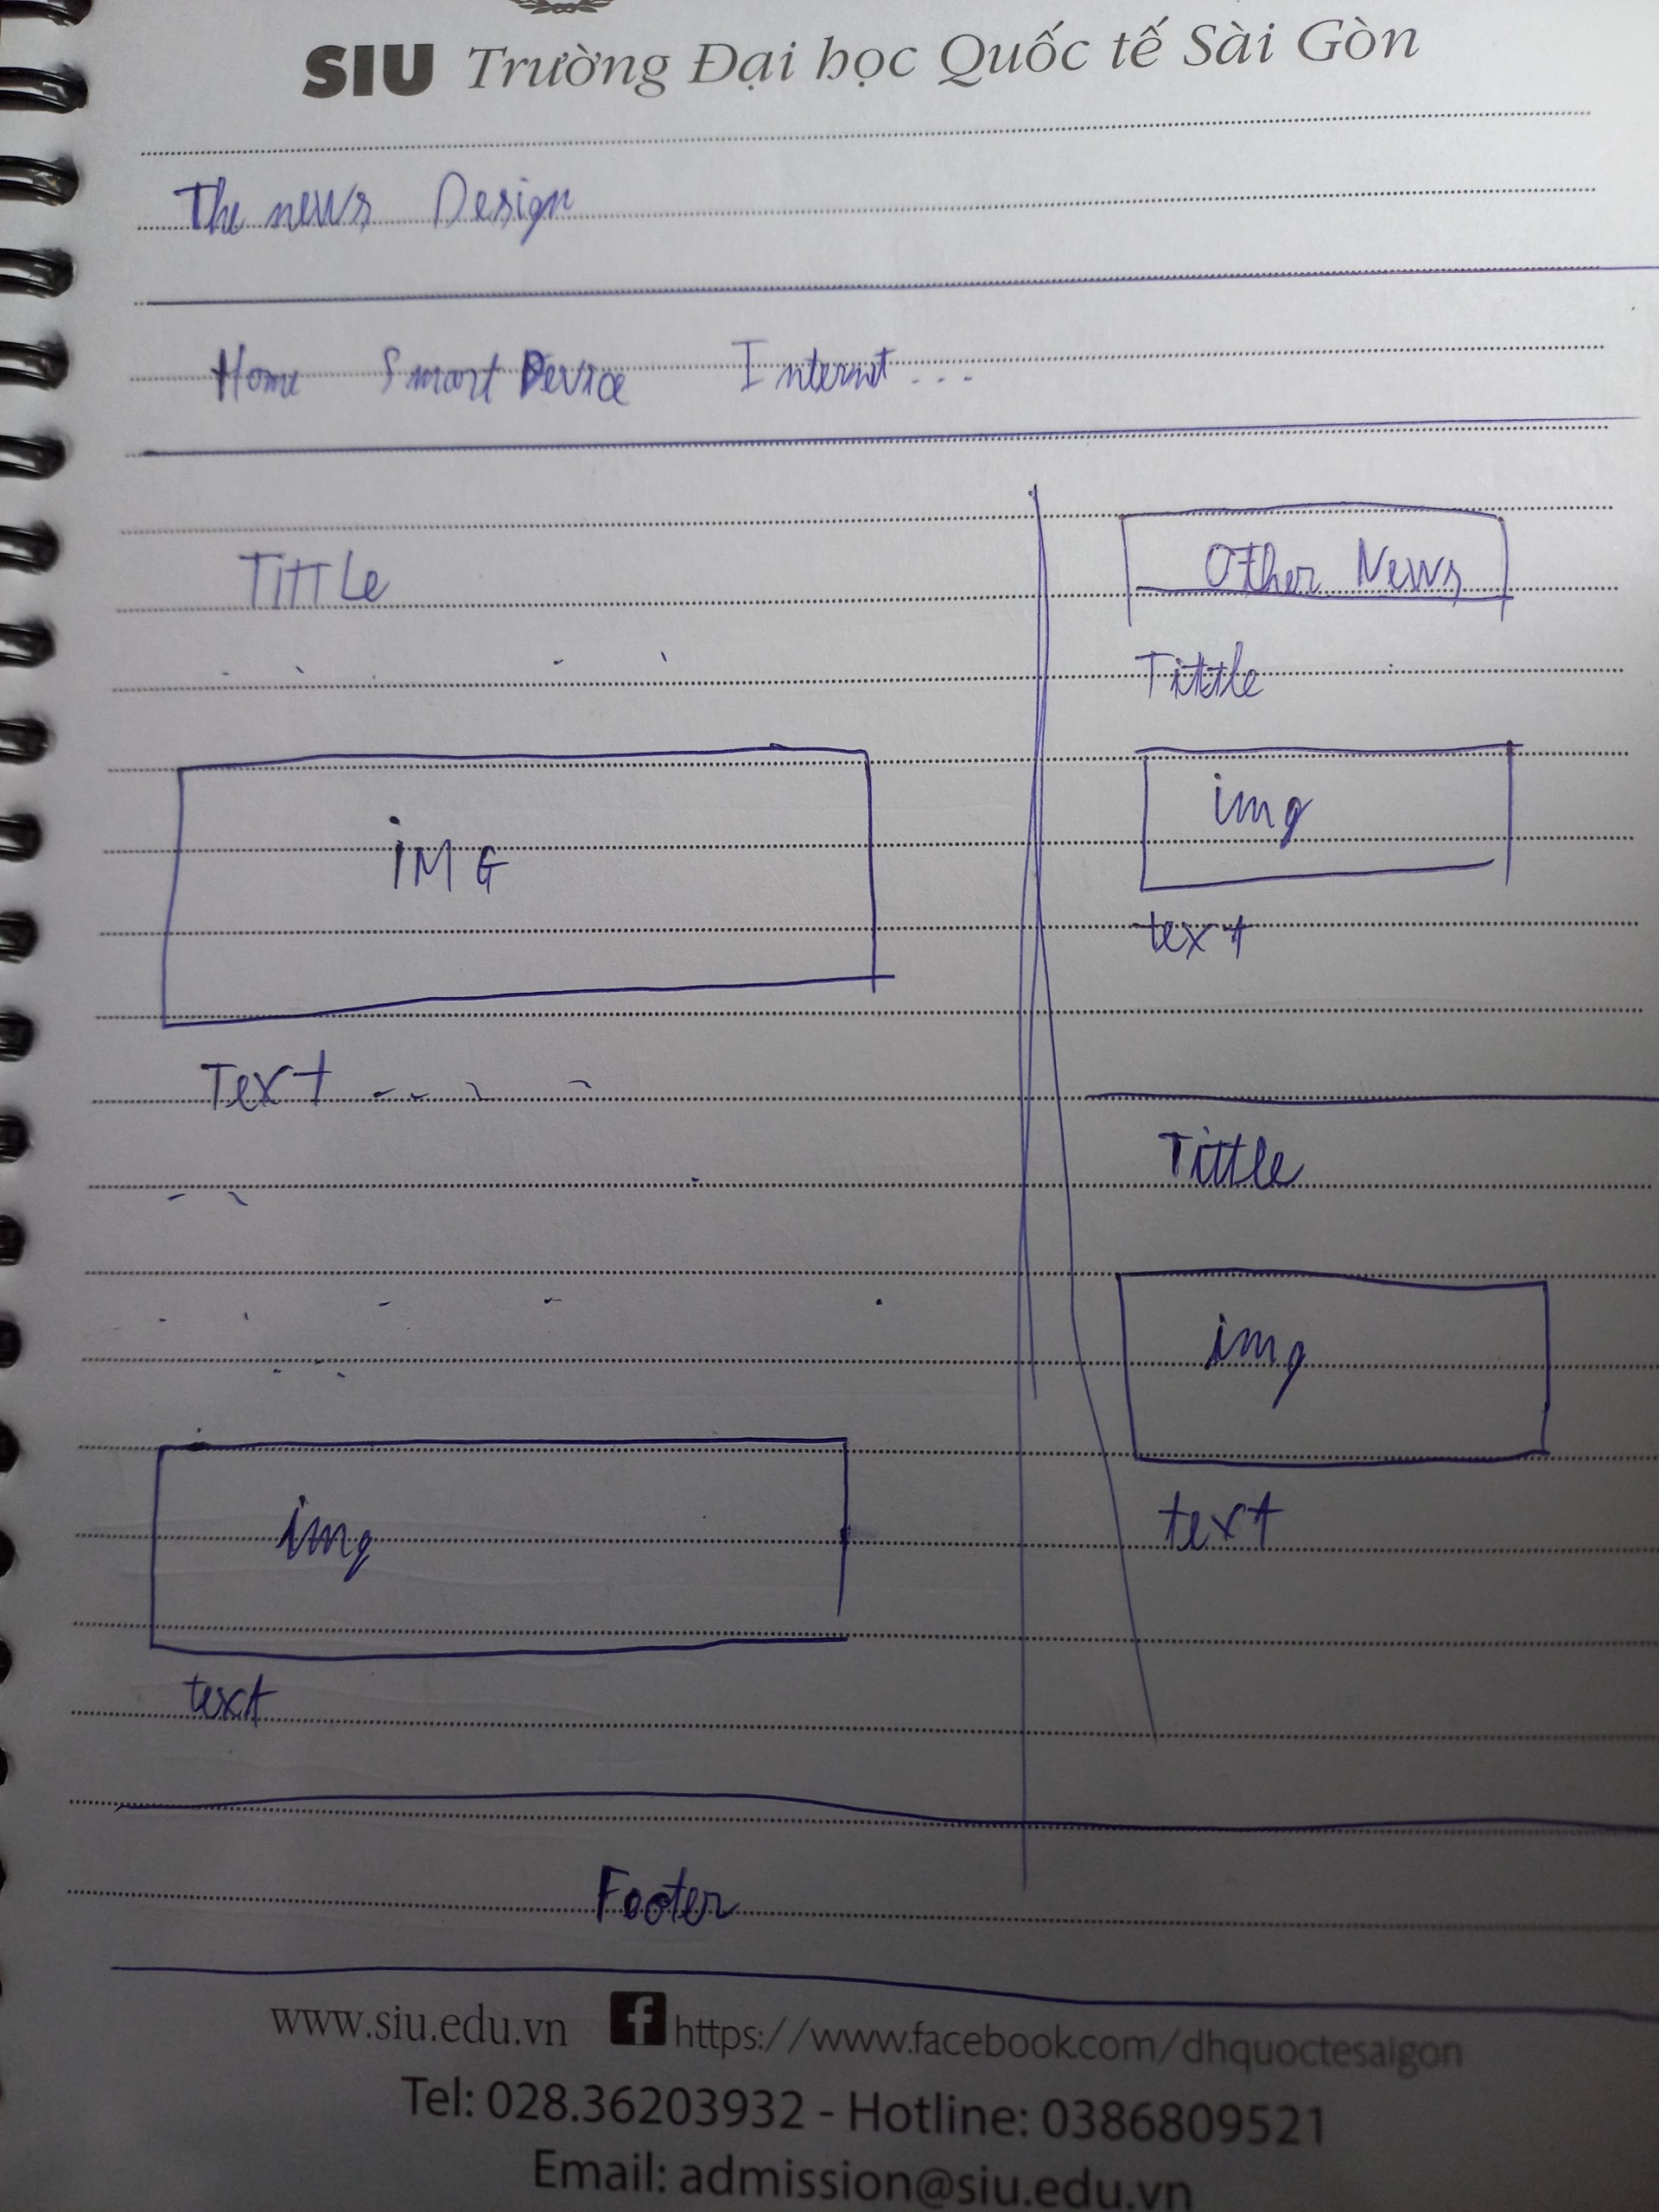 SIU Trường Đại học Quốc tế Sài Gòn
The news Design
Home Smart Device Internet...
TITTLe
iMG
Text
img
text
Other News
Tittle
img
text
Tittle
img
text
Footer
www.siu.edu.vn f https://www.facebook.com/dhquoctesaigon
Tel: 028.36203932 - Hotline: 0386809521
Email: admission@siu.edu.vn